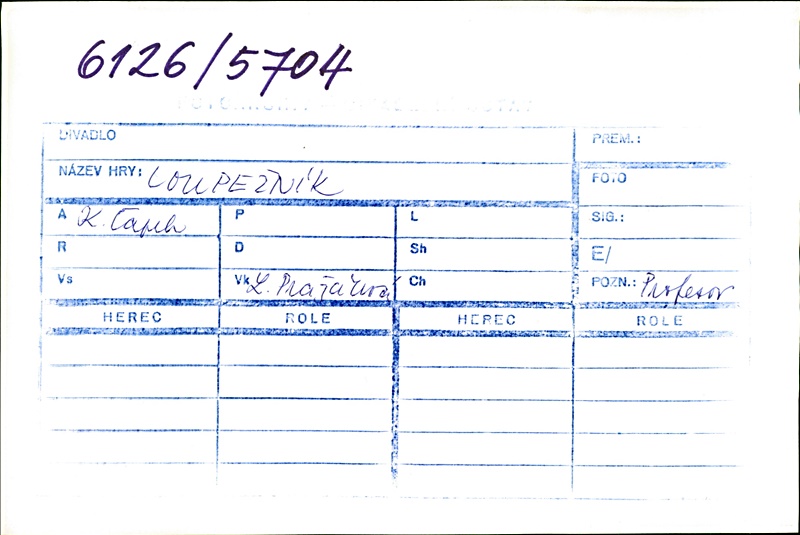 6126/5704
DIVADLO
PREM.:
NÁZEV HRY: LOUPEŽNÍK
FOTO
A K. Čapek
P
L
SIG.:
R
D
Sh
E/
Vs
Vk L. Pražáková
Ch
POZN.: Profesor
HEREC ROLE HEREC ROLE